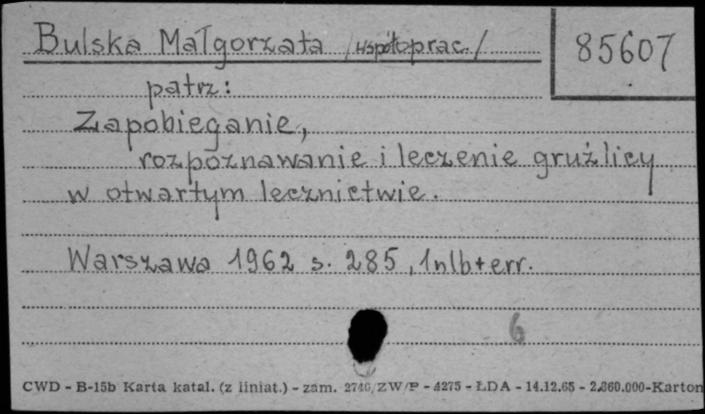 Bulska Małgorzata /współoprac./
85607
patrz:
Zapobieganie,
rozpoznawanie i leczenie gruźlicy
w otwartym lecznictwie.
Warszawa 1962 s. 285, 1nlb+err.
6
CWD - B-15b Karta katal. (z liniat.) - zam. 2740/ZW/P - 4275 - ŁDA - 14.12.65 - 2.860.000-Karton